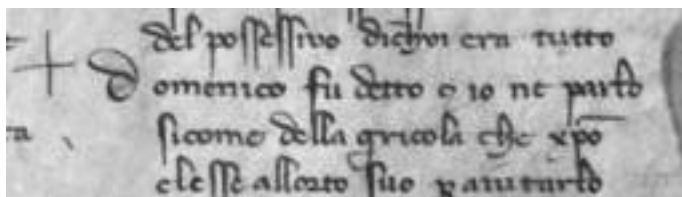 del possessivo dichui era tutto
domenico fu detto e io ne parlo
sicome della gricola che xpo
elesse allorto suo p aiutarlo